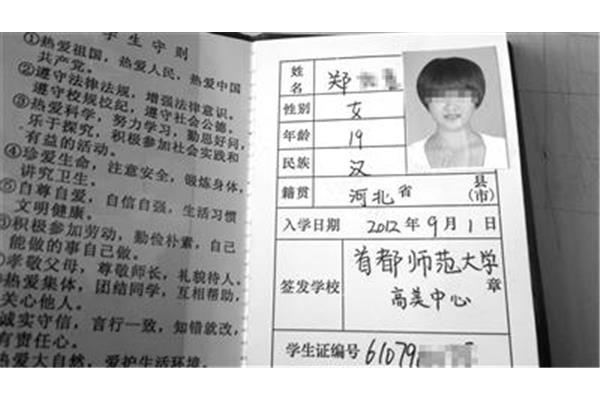 学生守则
①热爱祖国，热爱人民，热爱中国
共产党。
②遵守法律法规，增强法律意识。
遵守校规校纪，遵守社会公德。
③热爱科学，努力学习，勤思好问，
乐于探究，积极参加社会实践和
有益的活动。
④珍爱生命，注意安全，锻炼身体，
讲究卫生。
⑤自尊自爱，自信自强，生活习惯
文明健康。
积极参加劳动，勤俭朴素，自己
能做的事自己做。
孝敬父母，尊敬师长，礼貌待人。
热爱集体，团结同学，互相帮助，
关心他人。
诚实守信，言行一致，知错就改，
有责任心。
热爱大自然，爱护生活环境。
姓名 郑
性别 女
年龄 19
民族 汉
籍贯 河北省 县(市)
入学日期 2012年9月1日
签发学校 首都师范大学
高美中心 章
学生证编号 61079